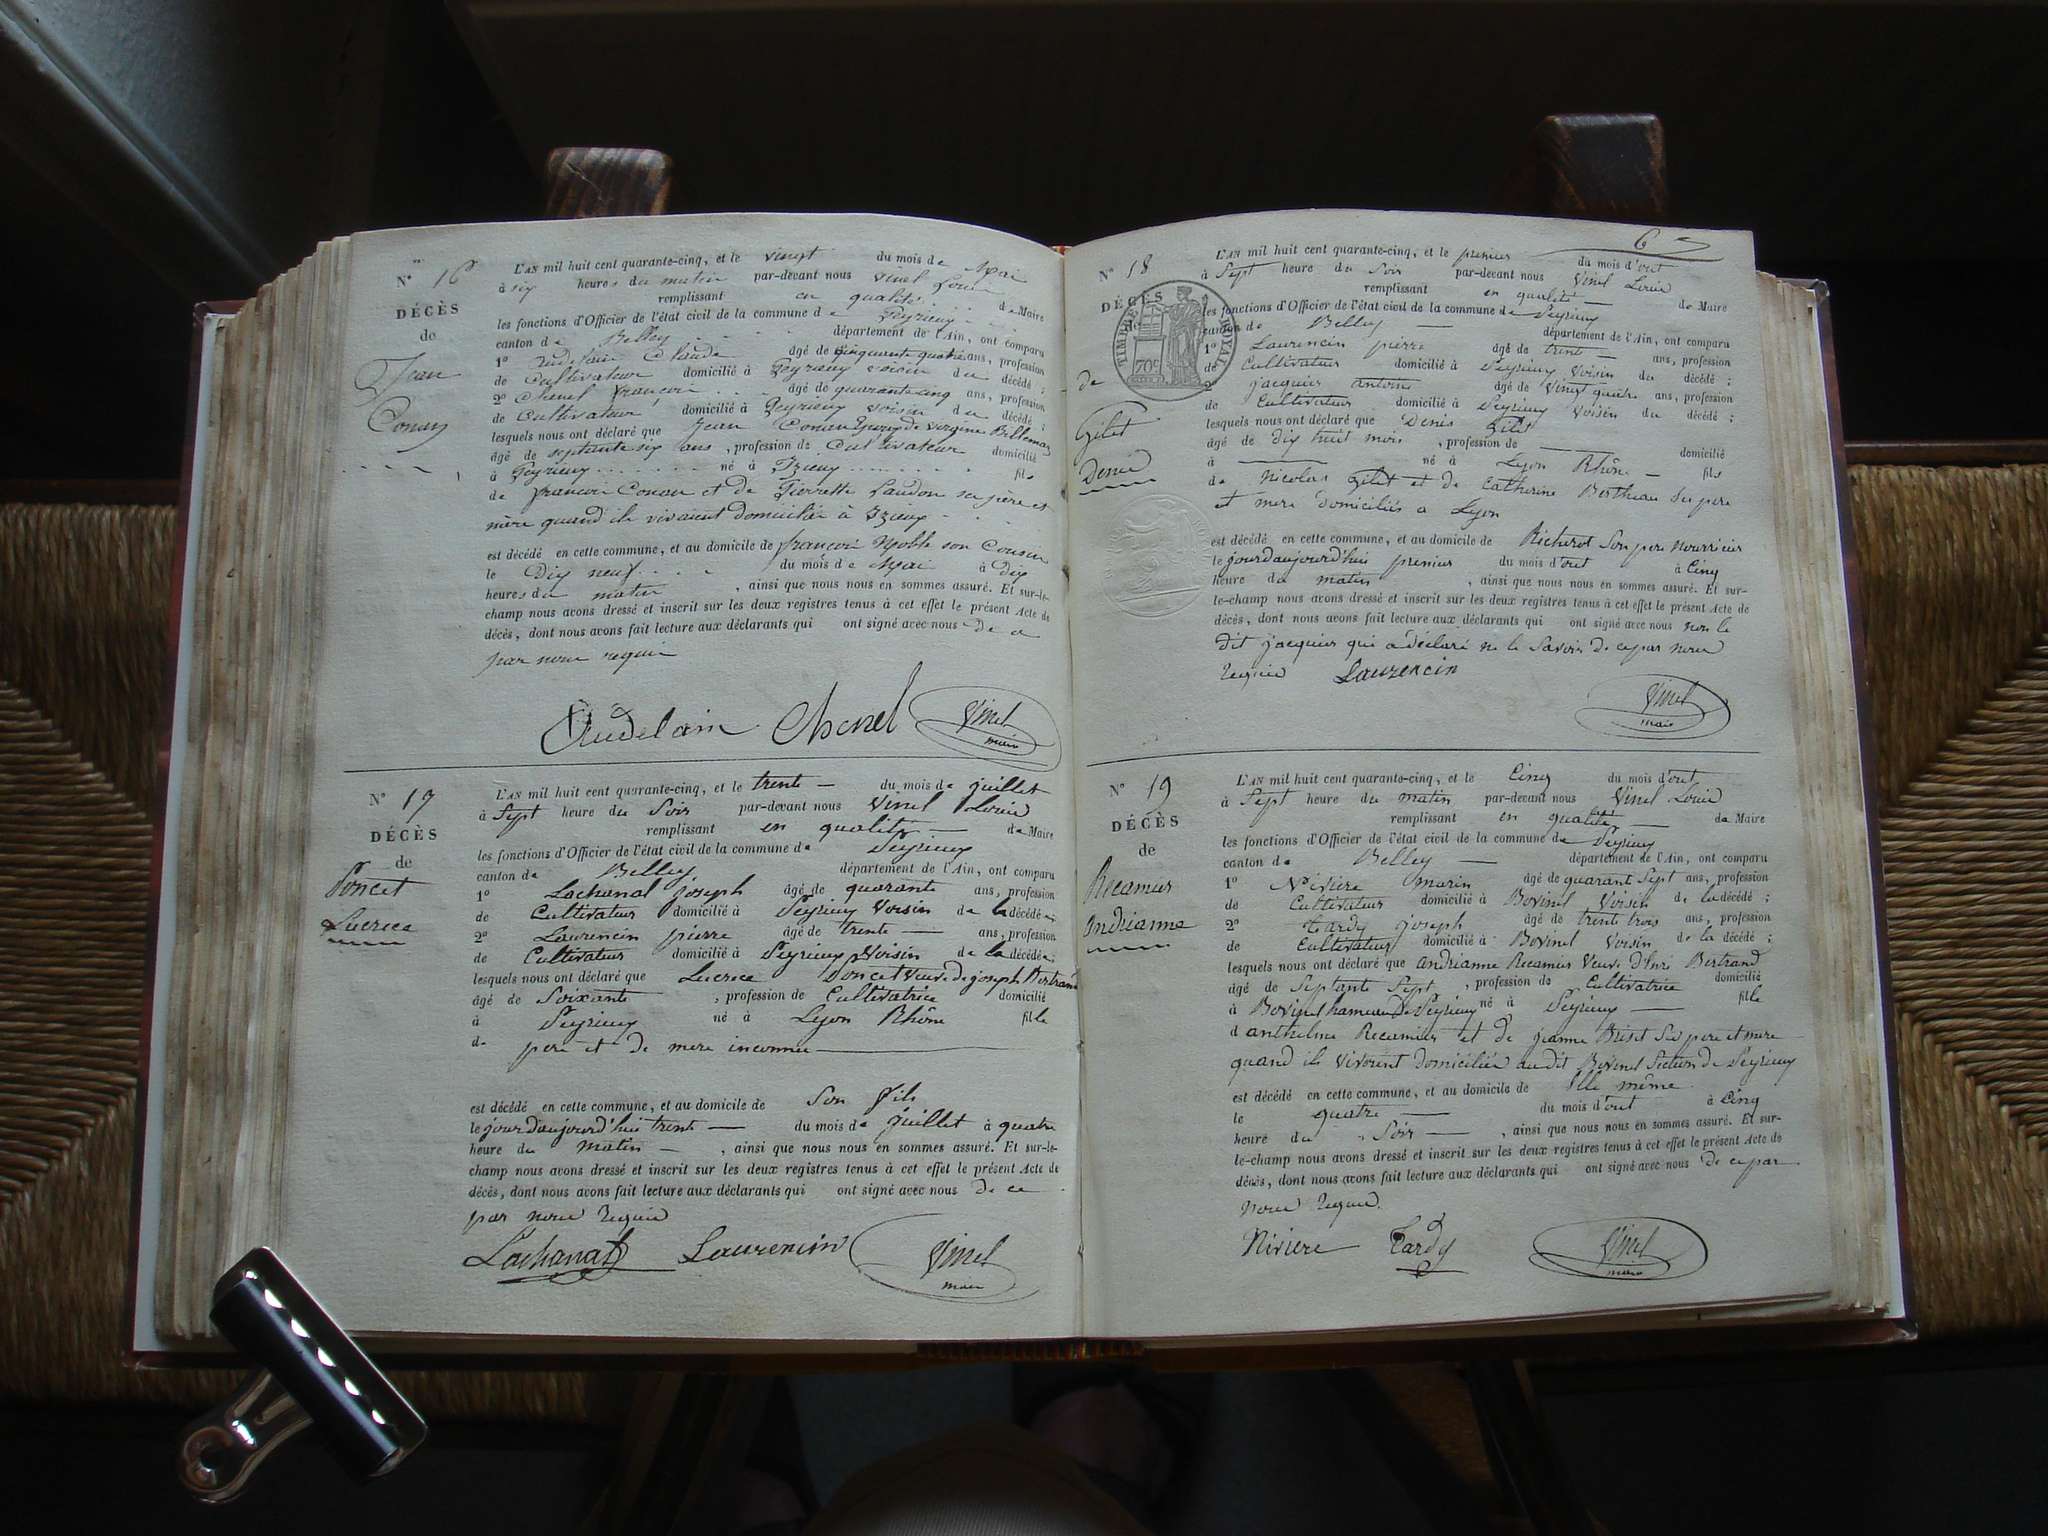 N° 16
DÉCÈS
de
Jean
Conan
L'AN mil huit cent quarante-cinq, et le vingt du mois de Mai
à six heures du matin par-devant nous Vinel Louis
remplissant en qualité de Maire
les fonctions d'Officier de l'état civil de la commune de Peyrieux
canton de Belley département de l'Ain, ont comparu
1° Audelain Claude âgé de cinquante quatre ans, profession
de Cultivateur domicilié à Peyrieux voisin du décédé ;
2° Chenel françois âgé de quarante cinq ans, profession
de Cultivateur domicilié à Peyrieux voisin du décédé ;
lesquels nous ont déclaré que Jean Conan de virginie Billemaz
âgé de septante six ans, profession de Cultivateur domicilié
à Peyrieux né à Izieux fils
de françois Conan et de Pierrette Laudon ses père et
mère quand ils vivaient domiciliés à Izieux
est décédé en cette commune, et au domicile de françois Noble son Cousin
le Dix neuf du mois de Mai à dix
heures du matin, ainsi que nous nous en sommes assuré. Et sur-le-
champ nous avons dressé et inscrit sur les deux registres tenus à cet effet le présent Acte de
décès, dont nous avons fait lecture aux déclarants qui ont signé avec nous de ce
par nous requis
Audelain Chenel Vinel
maire
N° 17
DÉCÈS
de
Poncet
Lucrece
L'AN mil huit cent quarante-cinq, et le trente du mois de juillet
à Sept heure du Soir par-devant nous Vinel Louis
remplissant en qualité de Maire
les fonctions d'Officier de l'état civil de la commune de Peyrieux
canton de Belley département de l'Ain, ont comparu
1° Lachanal joseph âgé de quarante ans, profession
de Cultivateur domicilié à Peyrieux Voisin de la décédée ;
2° Laurencin pierre âgé de trente ans, profession
de Cultivateur domicilié à Peyrieux Voisin de la décédée ;
lesquels nous ont déclaré que Lucrece Poncet Veuve de joseph Bertrand
âgé de Soixante, profession de Cultivatrice domicilié
à Peyrieux né à Lyon Rhône fille
de pere et de mere inconnu
est décédé en cette commune, et au domicile de Son fils
le jourdaujourd'hui trente du mois de juillet à quatre
heure du matin, ainsi que nous nous en sommes assuré. Et sur-le-
champ nous avons dressé et inscrit sur les deux registres tenus à cet effet le présent Acte de
décès, dont nous avons fait lecture aux déclarants qui ont signé avec nous de ce
par nous requis
Lachanal Laurencin Vinel
maire
6
N° 18
DÉCÈS
de
TIMBRE ROYAL
70c
de
Gilet
Denis
L'AN mil huit cent quarante-cinq, et le premier du mois d'out
à Sept heure du Soir par-devant nous Vinel Louis
remplissant en qualité de Maire
les fonctions d'Officier de l'état civil de la commune de Peyrieux
canton de Belley département de l'Ain, ont comparu
1° Laurencin pierre âgé de trente ans, profession
de Cultivateur domicilié à Peyrieux Voisin du décédé ;
2° jacquier antoine âgé de Vingt quatre ans, profession
de Cultivateur domicilié à Peyrieux Voisin du décédé ;
lesquels nous ont déclaré que Denis Gilet
âgé de dix huit mois, profession de domicilié
à né à Lyon Rhône fils
de Nicolas Gilet et de Catherine Bertheau Ses pere
et mere domiciliés a Lyon
est décédé en cette commune, et au domicile de Richerot Son pere Nourricier
le jourdaujourd'hui premier du mois d'out à Cinq
heure du matin, ainsi que nous nous en sommes assuré. Et sur-
le-champ nous avons dressé et inscrit sur les deux registres tenus à cet effet le présent Acte de
décès, dont nous avons fait lecture aux déclarants qui ont signé avec nous non le
dit jacquier qui a déclaré ne le Savoir de ce par nous
Requis Laurencin
Vinel
maire
N° 19
DÉCÈS
de
Recamier
Andrianne
L'AN mil huit cent quarante-cinq, et le Cinq du mois d'out
à Sept heure du matin par-devant nous Vinel Louis
remplissant en qualité de Maire
les fonctions d'Officier de l'état civil de la commune de Peyrieux
canton de Belley département de l'Ain, ont comparu
1° Nivière marin âgé de quarant Sept ans, profession
de Cultivateur domicilié à Bovinel Voisin de la décédé ;
2° Tardy joseph âgé de trente trois ans, profession
de Cultivateur domicilié à Bovinel Voisin de la décédé ;
lesquels nous ont déclaré que Andrianne Recamier Veuve d'hnri Bertrand
âgé de Septante Sept, profession de Cultivatrice domicilié
à Bovinel hameau De Peyrieux né à Peyrieux fille
d anthelme Recamier et de jeanne Briset Ses pere et mere
quand ils Vivoient domiciliés audit Bovinel Section De Peyrieux
est décédé en cette commune, et au domicile de Elle même
le quatre du mois d'out à Cinq
heure du Soir, ainsi que nous nous en sommes assuré. Et sur-
le-champ nous avons dressé et inscrit sur les deux registres tenus à cet effet le présent Acte de
décès, dont nous avons fait lecture aux déclarants qui ont signé avec nous de ce par
nous Requis
Niviere Tardy Vinel
maire